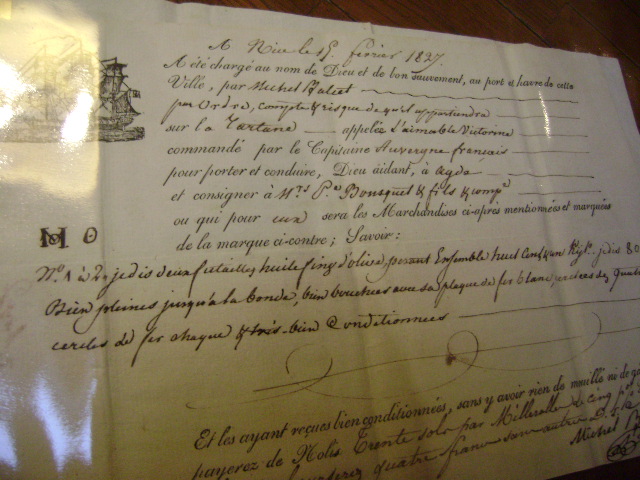 A Nice le 15 février 1827.
A été chargé au nom de Dieu et de bon sauvement, au port et havre de cette
Ville, par Michel
par Ordre, compte & risque de qu'il appartiendra
sur la Tartane appelée l'aimable Victorine
commandé par le Capitaine Auvergne français
pour porter et conduire, Dieu aidant, à agde
et consigner à Mrs Pre Bousquet & fils & compe
ou qui pour eux sera les Marchandises ci-après mentionnées et marquées
de la marque ci-contre; Savoir:
M O
No. 1 à 2, je dis deux futailles huile fine d'olive, pesant Ensemble huit Cent un Kilo. je dis 80
Bien pleines jusqu'à la bonde, bien bouchées avec sa plaque de fer blanc, quatre
cercles de fer chaque & très-bien Conditionnées
Et les ayant reçues bien conditionnées, sans y avoir rien de mouillé ni de
payerez de Nolis Trente sols par Millerolle de cinq
quatre francs sans autre
Michel